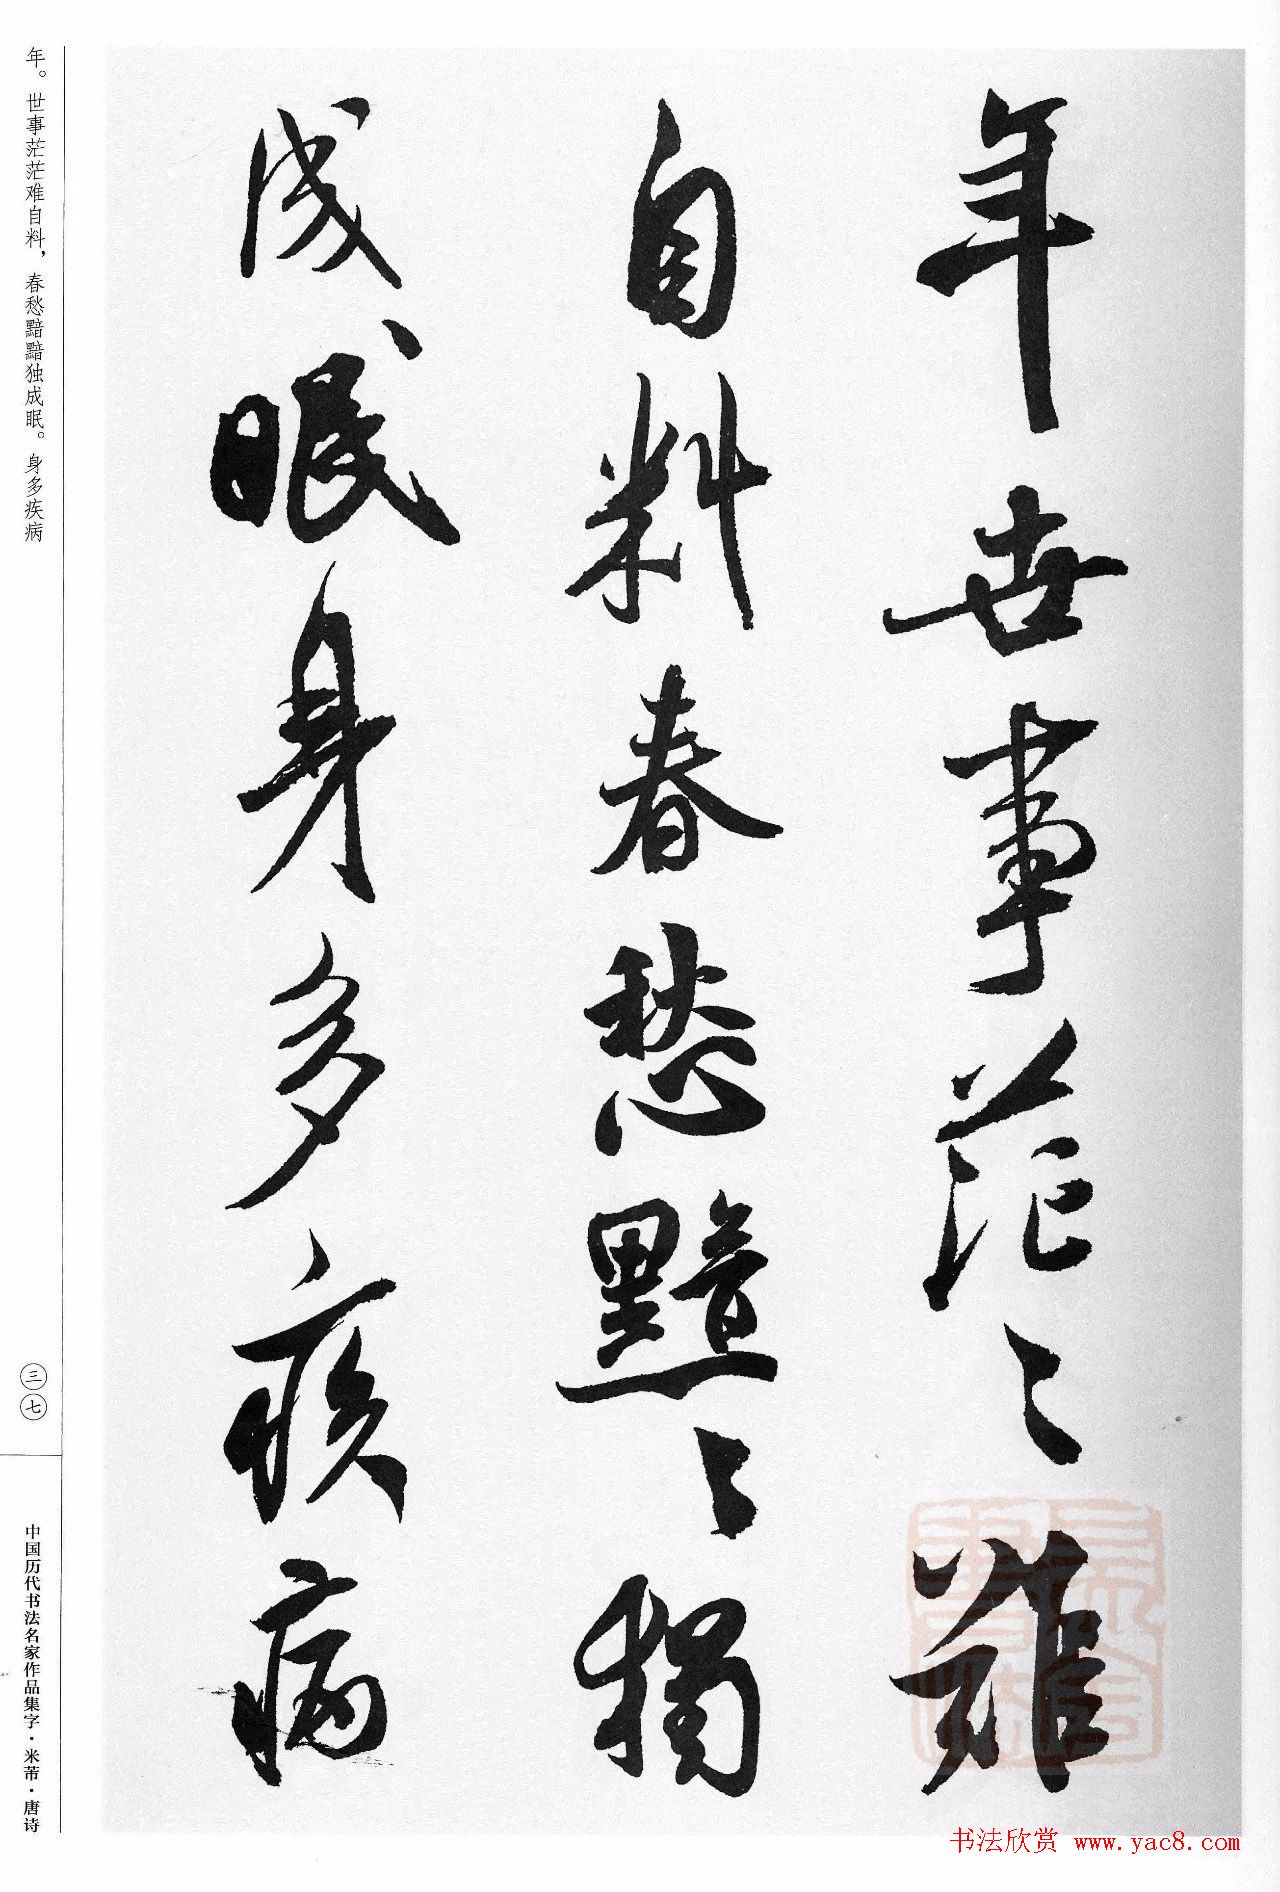 年世事茫々難
自料春愁黯々獨
成眠身多疾病
年。世事茫茫难自料，春愁黯黯独成眠。身多疾病
三七
中国历代书法名家作品集字·米芾·唐诗
书法欣赏 www.yac8.com